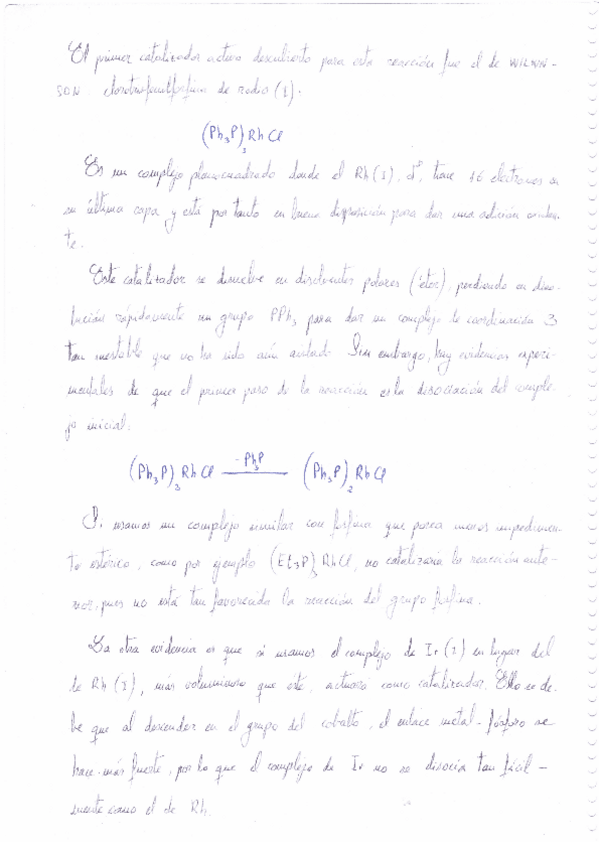 El primer catalizador activo descubierto para esta reacción fue el de WILKIN-
SON: de rodio (I).
(Ph3P)3RhCl
Es un complejo planocuadrado donde el Rh(I), d8, tiene 16 electrones en
su última capa y está por tanto en buena disposición para dar una adición oxidan-
te.
Este catalizador se disuelve en disolventes polares (éter), perdiendo en diso-
lución rápidamente un grupo PPh3 para dar un complejo de coordinación 3
tan inestable que no ha sido aún aislado. Sin embargo, hay evidencias experi-
mentales de que el primer paso de la reacción es la disociación del comple-
jo inicial:
(Ph3P)3RhCl -Ph3P (Ph3P)2RhCl
Si usamos un complejo similar con fosfina que posea menos impedimen-
to estérico, como por ejemplo (Et3P)3RhCl, no catalizaría la reacción ante-
rior, pues no está tan favorecida la reacción del grupo fosfina.
La otra evidencia es que si usamos el complejo de Ir(I) en lugar del
de Rh(I), más voluminoso que éste, actuará como catalizador. Ello se de-
be que al descender en el grupo del cobalto, el enlace metal-fósforo se
hace más fuerte, por lo que el complejo de Ir no se disocia tan fácil-
mente como el de Rh.